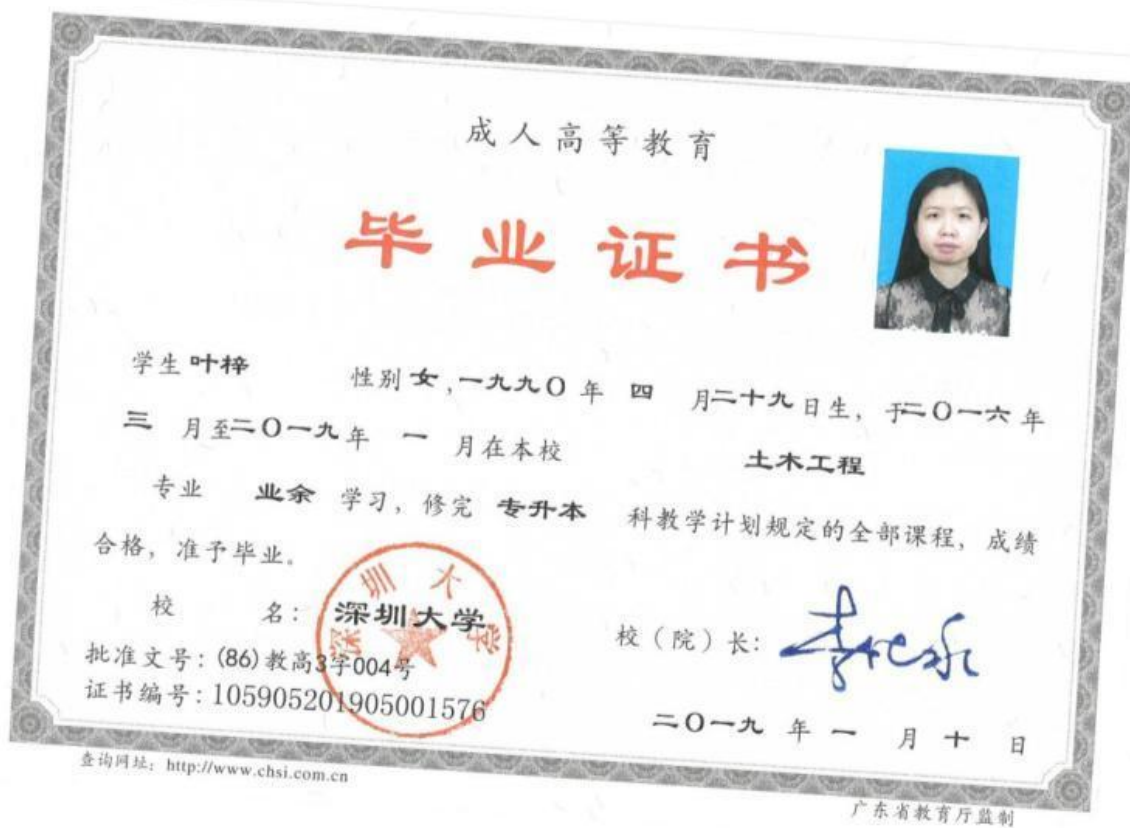 成人高等教育
毕业证书
学生 叶梓 性别 女,一九九〇 年 四 月二十九日生，于二〇一六年
三 月至二〇一九年 一 月在本校 土木工程
专业 业余 学习，修完 专升本 科教学计划规定的全部课程，成绩
合格，准予毕业。
深圳大学
校 名：深圳大学
校（院）长：
批准文号：(86)教高3字004号
证书编号：105905201905001576
二〇一九 年 一 月 十 日
查询网址：http://www.chsi.com.cn
广东省教育厅监制